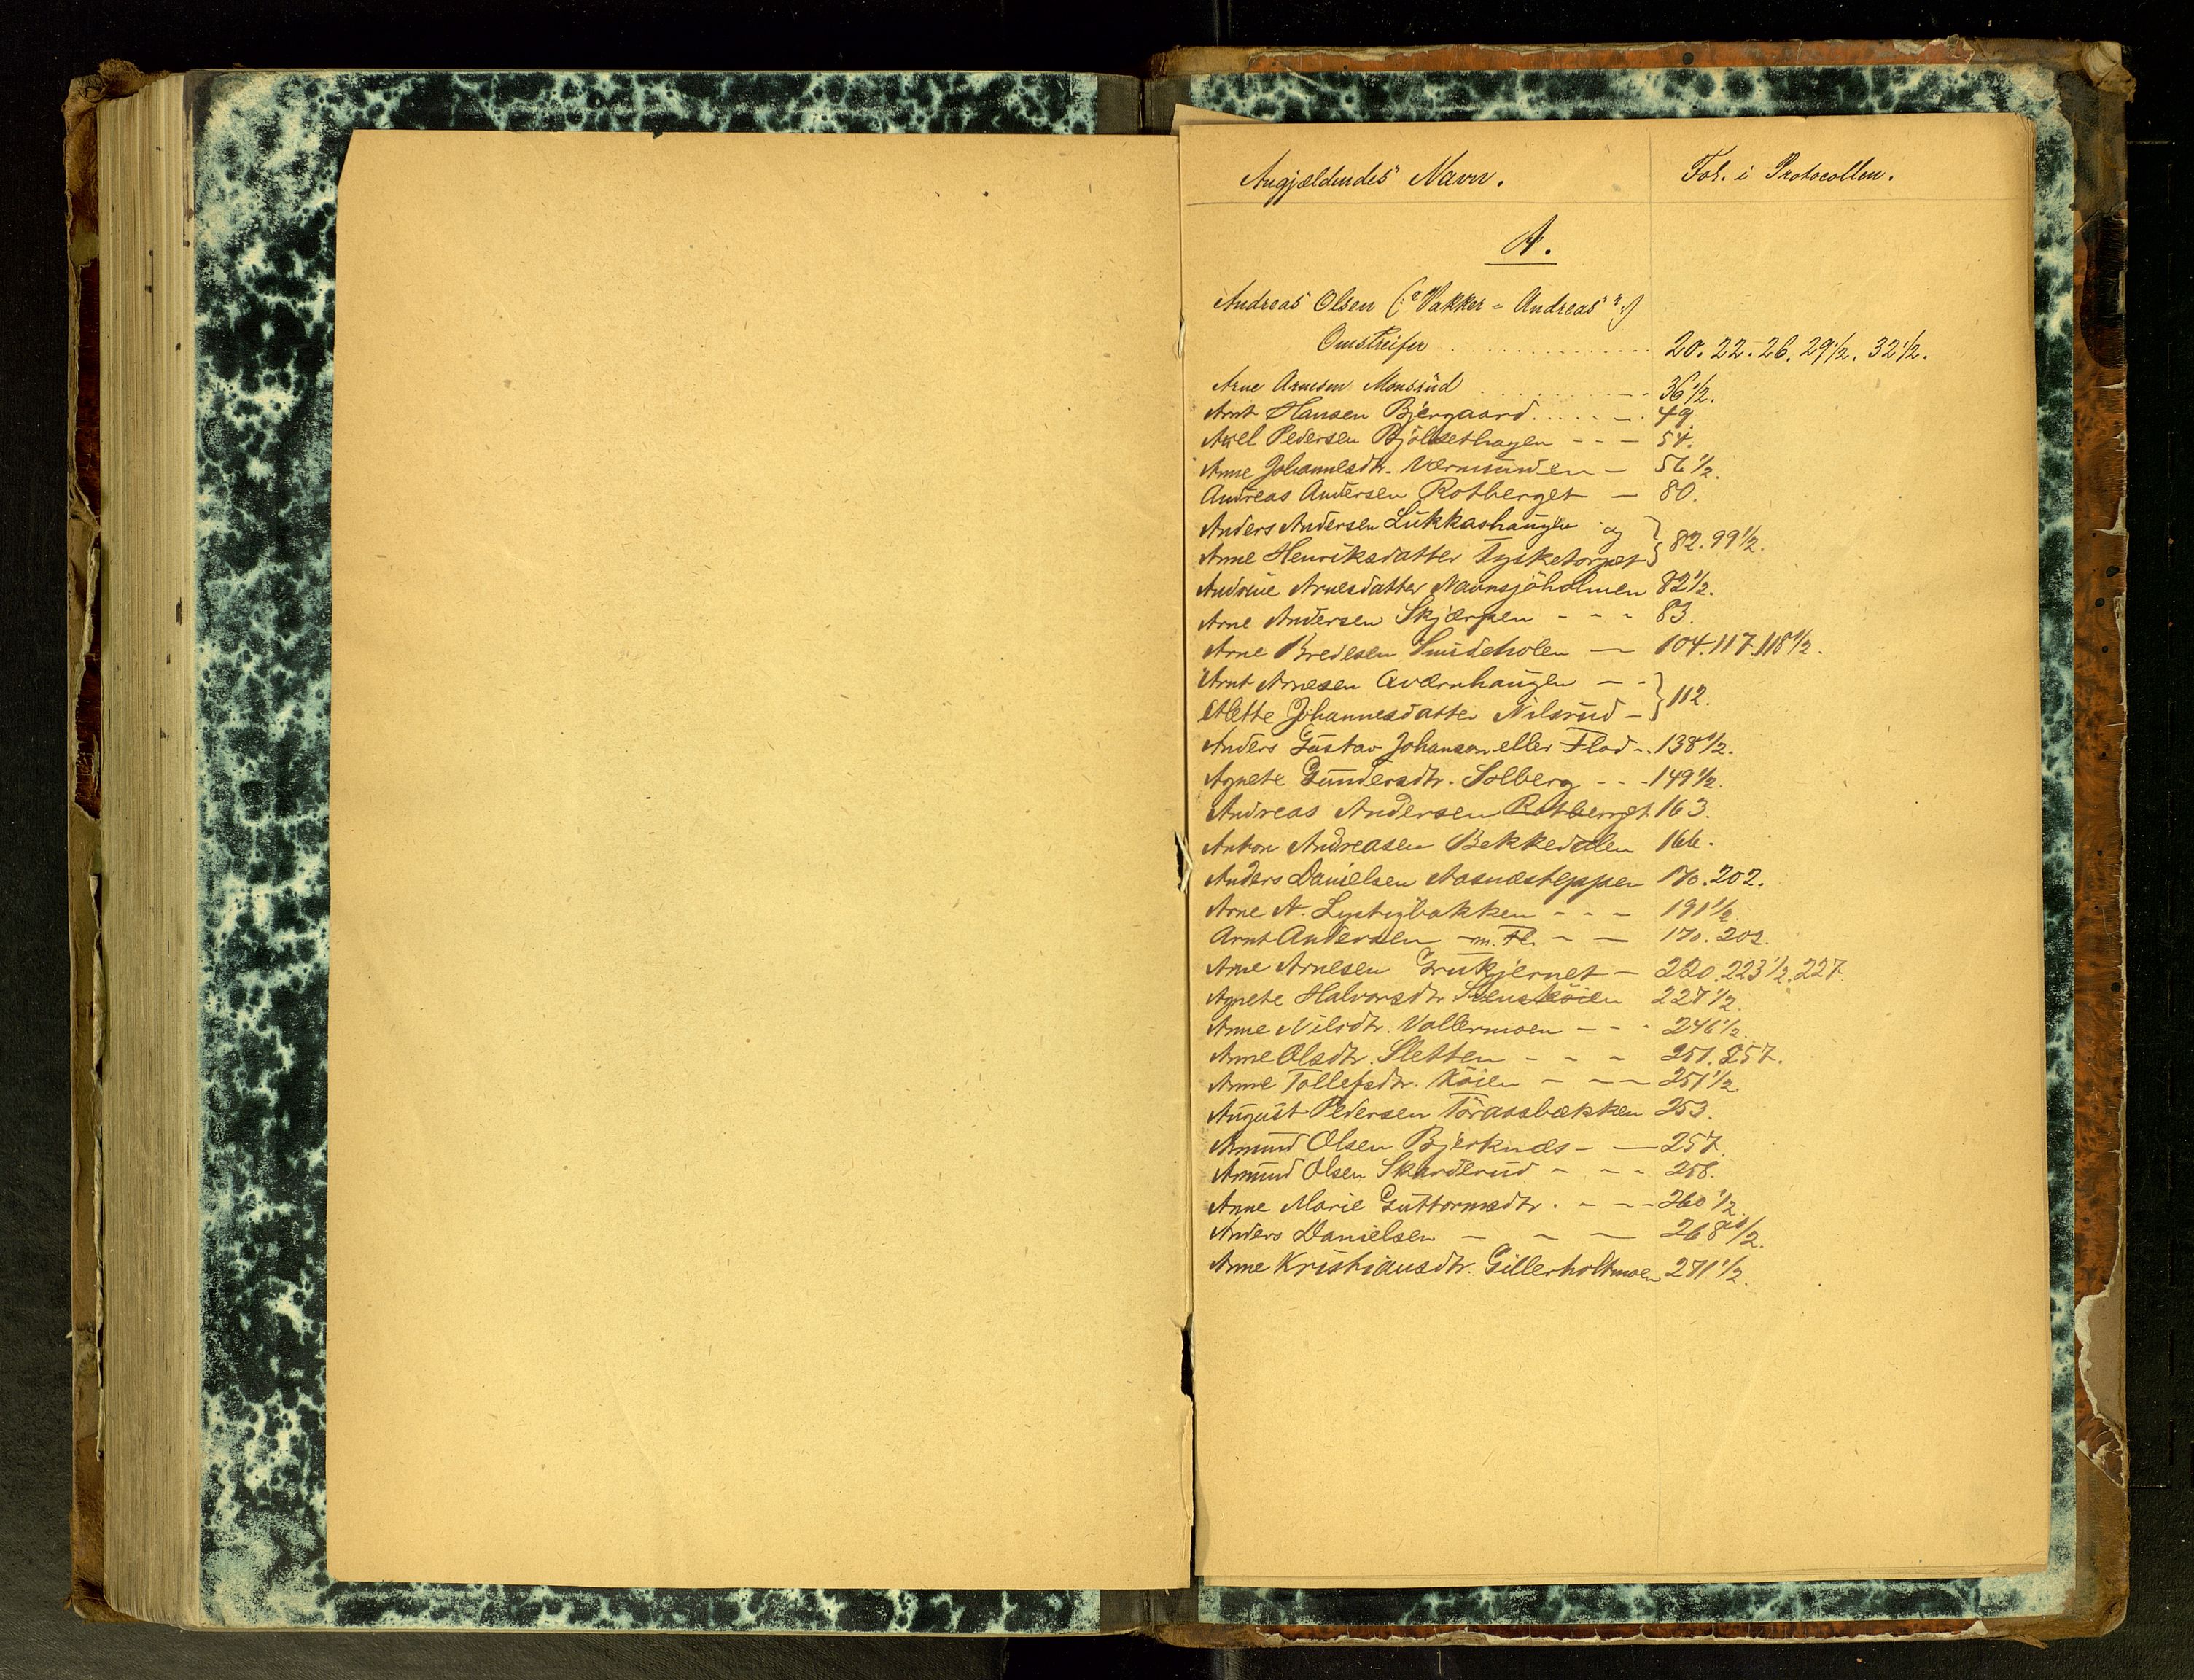 Angjældendes Navn. Fol. i Protocollen.
A.
Andreas Olsen (: "Vakker-Andreas" :)
Omstreifer 20. 22. 26. 29 1/2. 32 1/2.
Arne Arnesen Monsrud 36 1/2.
Arnt Hansen Bjergaard 49
Axel Pedersen Bjölsethagen - - - 54.
Anne Johannesdtr. Vermunden - 56 1/2.
Andreas Andersen Rotberget - 80.
Anders Andersen Lukkashaugen og
Anne Henriksdatter Tysketorpet } 82. 99 1/2.
Andrine Arnesdatter Navnsjöholmen 82 1/2.
Arne Andersen Skjærpen - - - 83.
Arne Bredesen Smideholen - 104. 117. 118 1/2.
Arnt Arnesen Qværnhaugen - -
Alette Johannesdatter Nilsrud - } 112.
Anders Gustav Johanson eller Flod - . 138 1/2.
Agnete Gundersdtr. Solberg - - - 149 1/2.
Andreas Andersen Rotberget 163.
Anton Andreasen Bekkedalen 166.
Anders Danielsen Aasnæsteppen 170. 202.
Arne A. Lystigbakken - - - 191 1/2.
Arnt Andersen - m. Fl. - - 170. 202.
Arne Arnesen - 220. 223 1/2. 227.
Agnete Halvorsdtr Svensköien 227 1/2.
Anne Nilsdtr. Vallermoen - - - 246 1/2.
Anne Olsdtr. Sletten - - - 251. 257.
Anne Tollefsdtr. Köien - - - 251 1/2.
August Pedersen Toraasbækken 253.
Amund Olsen Bjerknæs - - 257.
Amund Olsen Skarderud - - - 258.
Anne Marie Guttormsdtr. - - - 260 1/2.
Anders Danielsen - - - 268 1/2.
Anne Kristiansdtr. Gillerholtmoen 271 1/2.